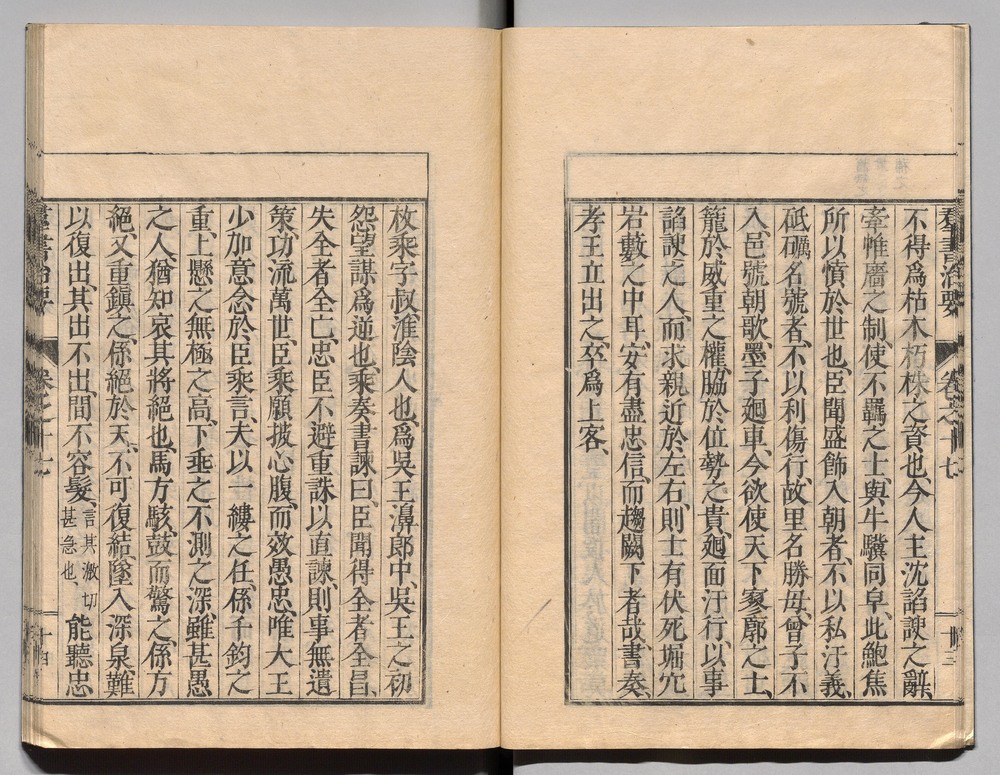 羣書治要 卷之十七 十三
不得爲枯木朽株之資也、今人主沈諂諛之辭、
牽帷廧之制、使不羈之士、與牛驥同皁、此鮑焦
所以憤於世也、臣聞盛飾入朝者、不以私汙義、
砥礪名號者、不以利傷行、故里名勝母、曾子不
入、邑號朝歌、墨子廻車、今欲使天下寥廓之士、
籠於威重之權、脇於位勢之貴、廻面汙行、以事
諂諛之人、而求親近於左右、則士有伏死堀穴
岩藪之中耳、安有盡忠信、而趨闕下者哉、書奏、
孝王立出之、卒爲上客、
枚乘字叔、淮陰人也、爲吳王濞郎中、吳王之初
怨望謀爲逆也、乘奏書諫曰、臣聞得全者全昌、
失全者全亡、忠臣不避重誅以直諫、則事無遺
策、功流萬世、臣乘願披心腹、而效愚忠、唯大王
少加意念於臣乘言、夫以一縷之任、係千鈞之
重、上懸之無極之高、下垂之不測之深、雖甚愚
之人、猶知哀其將絕也、馬方駭、鼓而驚之、係方
絕、又重鎭之、係絕於天、不可復結、墜入深泉、難
以復出、其出不出、間不容髮、言其激切甚急也、能聽忠
羣書治要 卷之十七 十四